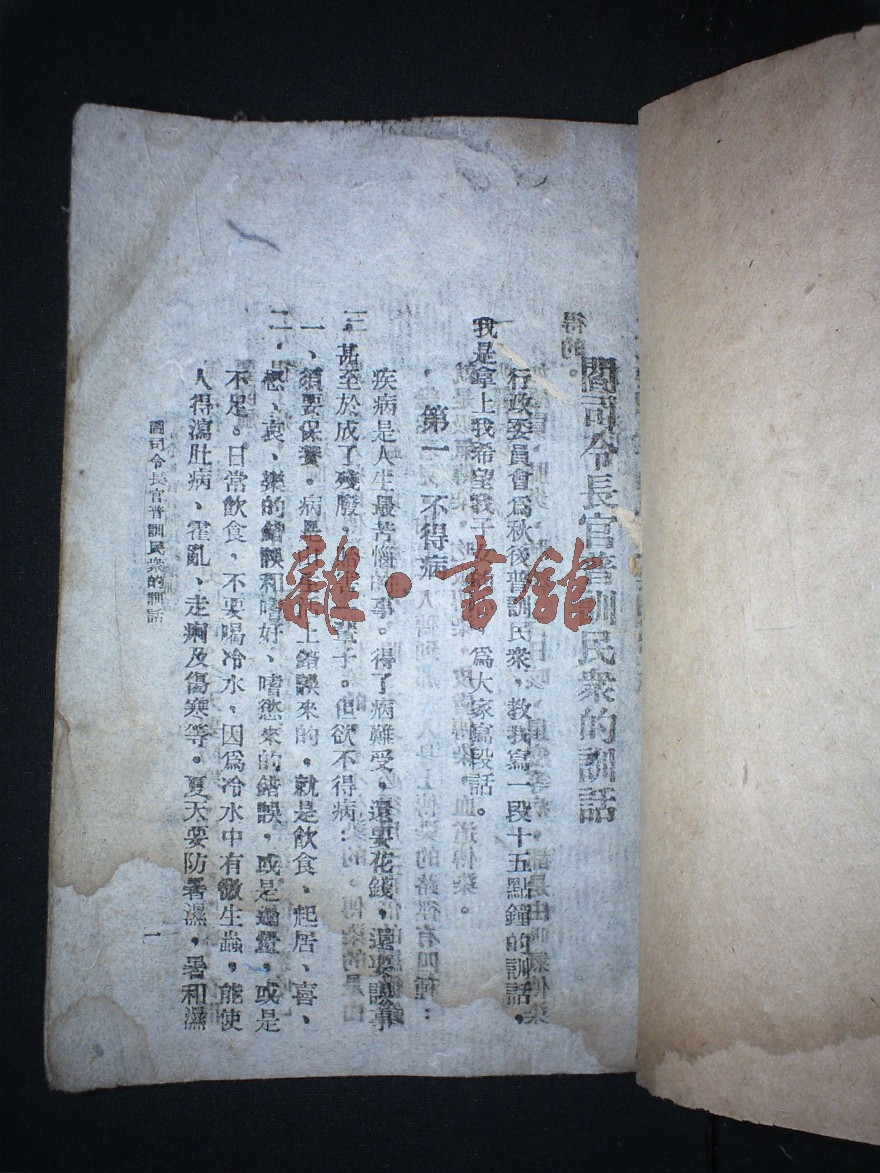 閻司令長官普訓民衆的訓話
行政委員會爲秋後普訓民衆，教我寫一段十五點鐘的訓話，
我是拿上我希望我子女的 爲大家寫段話。
第一 不得病
疾病是人生最苦惱的事。得了病難受，還要花錢，還要誤事
，甚至於成了殘廢， 一輩子。但欲不得病：
一、須要保養。病是由生活上錯誤來的，就是飲食、起居、喜、
、哀、樂的錯誤和嗜好、嗜慾來的錯誤，或是過量，或是
不足。日常飲食，不要喝冷水，因爲冷水中有微生蟲，能使
人得瀉肚病、霍亂、走痢及傷寒等。夏天要防暑濕，暑和濕
閻司令長官普訓民衆的訓話
一
得的。
雜·書館